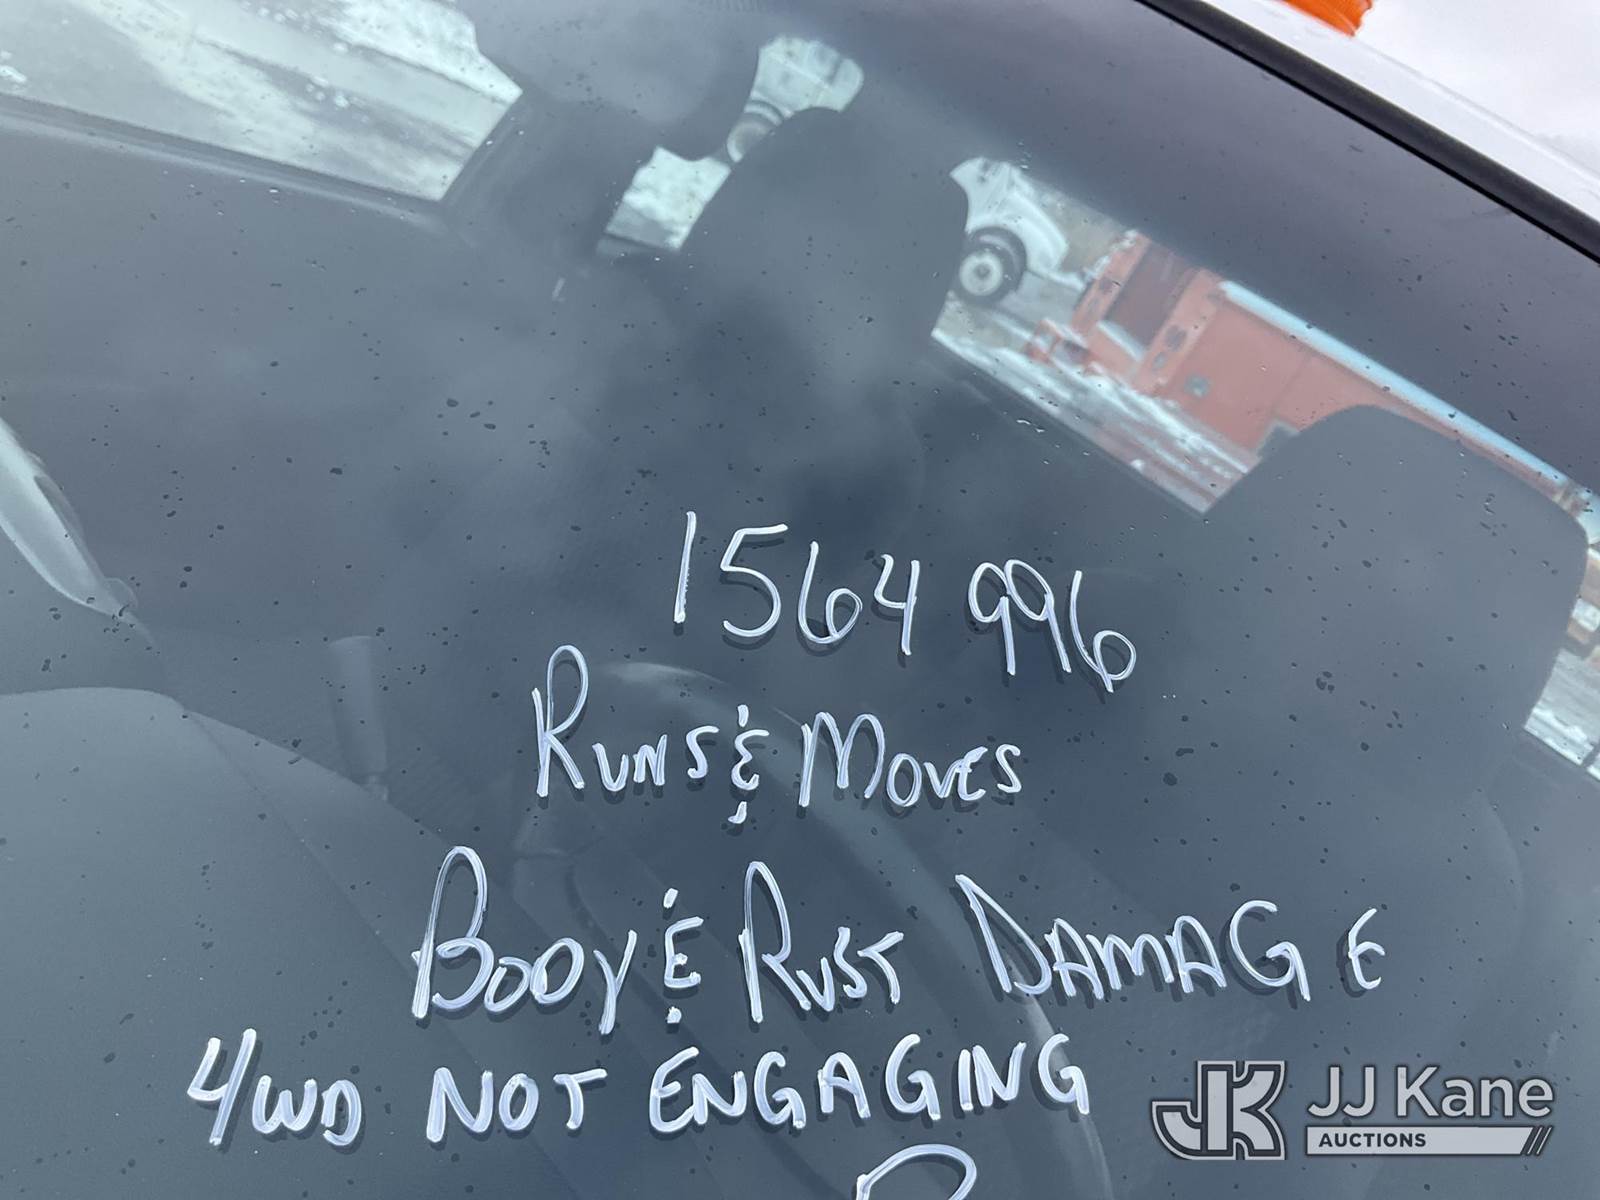 1564996
RUNS & MOVES
BODY & RUST DAMAGE
4WD NOT ENGAGING
JK JJ Kane
AUCTIONS